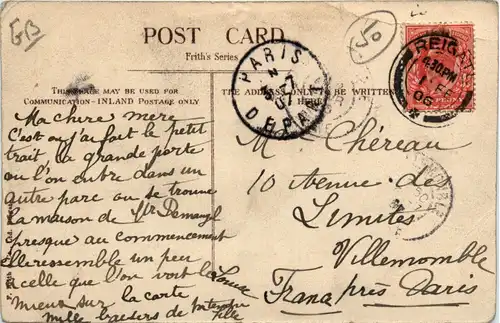 GB
POST CARD
Frith's Series
50
THIS SPACE MAY BE USED FOR
COMMUNICATION—INLAND POSTAGE ONLY
THE ADDRESS ONLY TO BE WRITTEN
HERE
PARIS
DEPART
REIGATE
4.30PM
FE
06
Ma chère mère
C'est où j'ai fait le petit
trait, la grande porte
où l'on entre dans un
autre parc où se trouve
la maison de
presque au commencement
elle ressemble un peu
à celle que l'on voit la
mieux sur la carte
mille baisers de
fille
M Chéreau
10 Avenue des
Limites
Villemomble
France près Paris